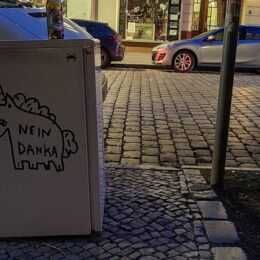 NEIN
DANKA